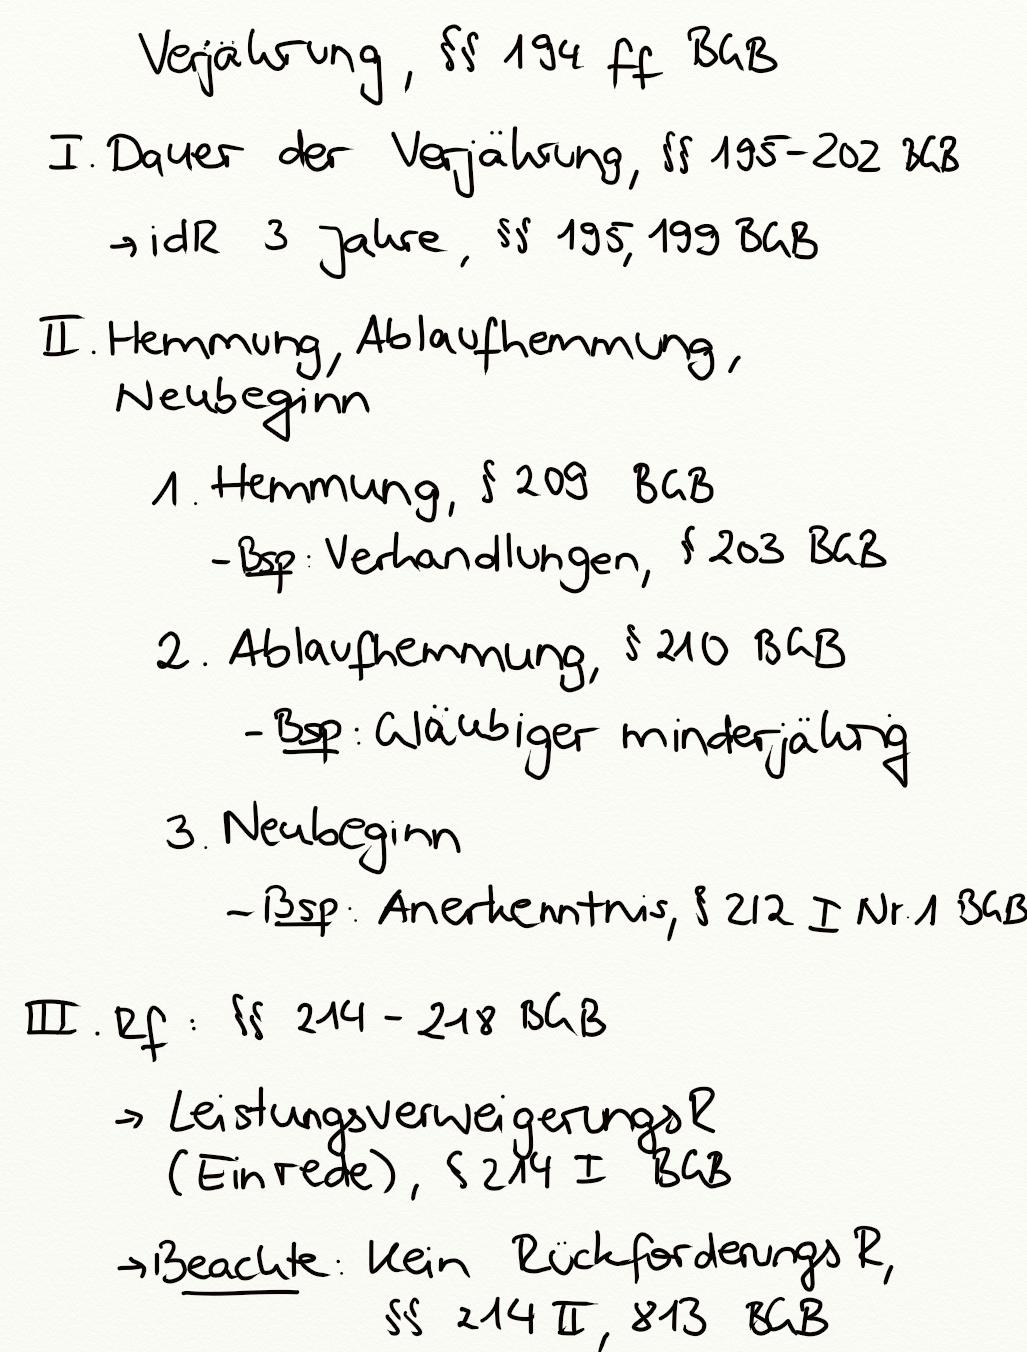 Verjährung, §§ 194 ff BGB
I. Dauer der Verjährung, §§ 195-202 BGB
→ idR 3 Jahre, §§ 195, 199 BGB
II. Hemmung, Ablaufhemmung,
Neubeginn
1. Hemmung, § 209 BGB
- Bsp: Verhandlungen, § 203 BGB
2. Ablaufhemmung, § 210 BGB
- Bsp: Gläubiger minderjährig
3. Neubeginn
- Bsp: Anerkenntnis, § 212 I Nr. 1 BGB
III. Rf: §§ 214 - 218 BGB
→ LeistungsverweigerungsR
(Einrede), § 214 I BGB
→ Beachte: Kein RückforderungsR,
§§ 214 II, 813 BGB